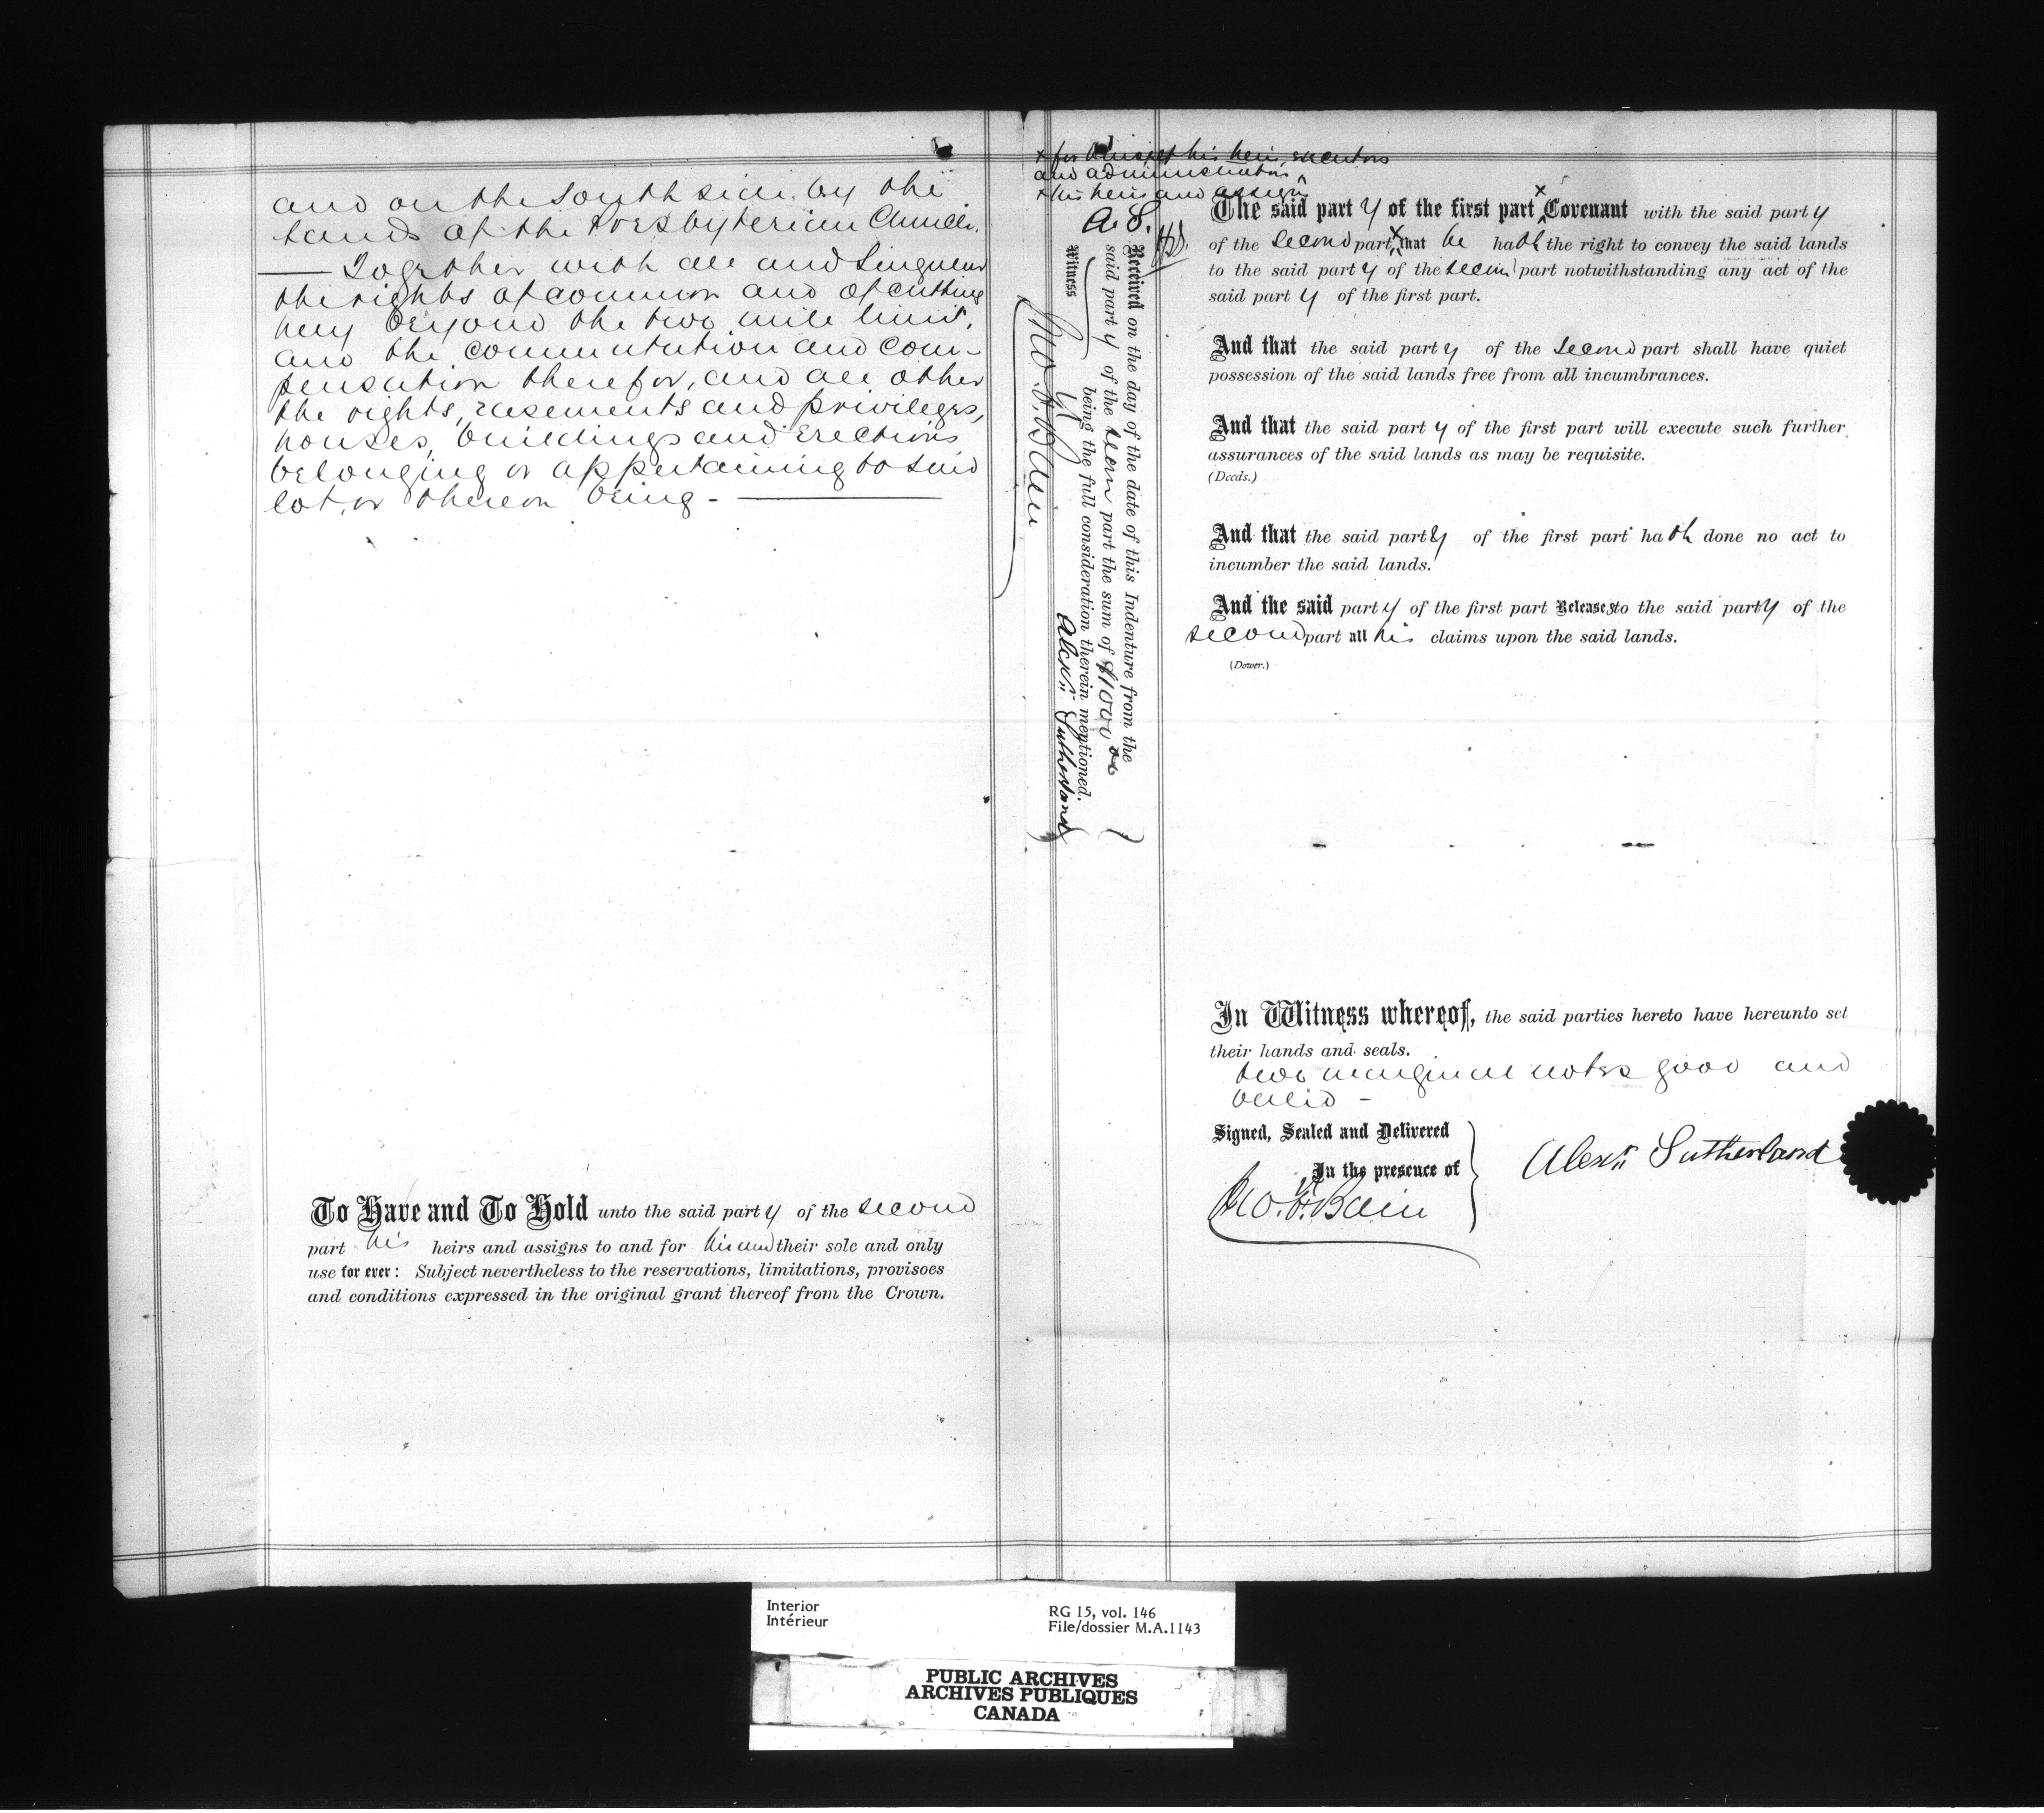 and on the South side by the
lands of the Presbyterian Church.
— Together with all and Singular
the rights of common and of cutting
hay beyond the two mile limit,
and the commutation and com-
pensation therefor, and all other
the rights, easements and privileges,
houses, buildings and Erections
belonging or appertaining to said
lot, or thereon being - —
To Have and To Hold unto the said party of the second
part his heirs and assigns to and for his and their sole and only
use for ever: Subject nevertheless to the reservations, limitations, provisoes
and conditions expressed in the original grant thereof from the Crown.
x for himself his heirs, executors
and administrators
x his heirs and assigns
A. S.
Received on the day of the date of this Indenture from the
said party of the second part the sum of $1000 00
being the full consideration therein mentioned.
Witness
Jno. H. Bain
Alexr. Sutherland
The said party of the first part x Covenant with the said party
of the second part, x that he hath the right to convey the said lands
to the said party of the second part notwithstanding any act of the
said party of the first part.
And that the said party of the Second part shall have quiet
possession of the said lands free from all incumbrances.
And that the said party of the first part will execute such further
assurances of the said lands as may be requisite.
(Deeds.)
And that the said party of the first part hath done no act to
incumber the said lands.
And the said party of the first part Releases to the said party of the
second part all his claims upon the said lands.
(Dower.)
In Witness whereof, the said parties hereto have hereunto set
their hands and seals.
two marginal notes good and
valid -
Signed, Sealed and Delivered
In the presence of
Jno. H. Bain
Alexr. Sutherland
Interior
Intérieur
RG 15, vol. 146
File/dossier M.A.1143
PUBLIC ARCHIVES
ARCHIVES PUBLIQUES
CANADA